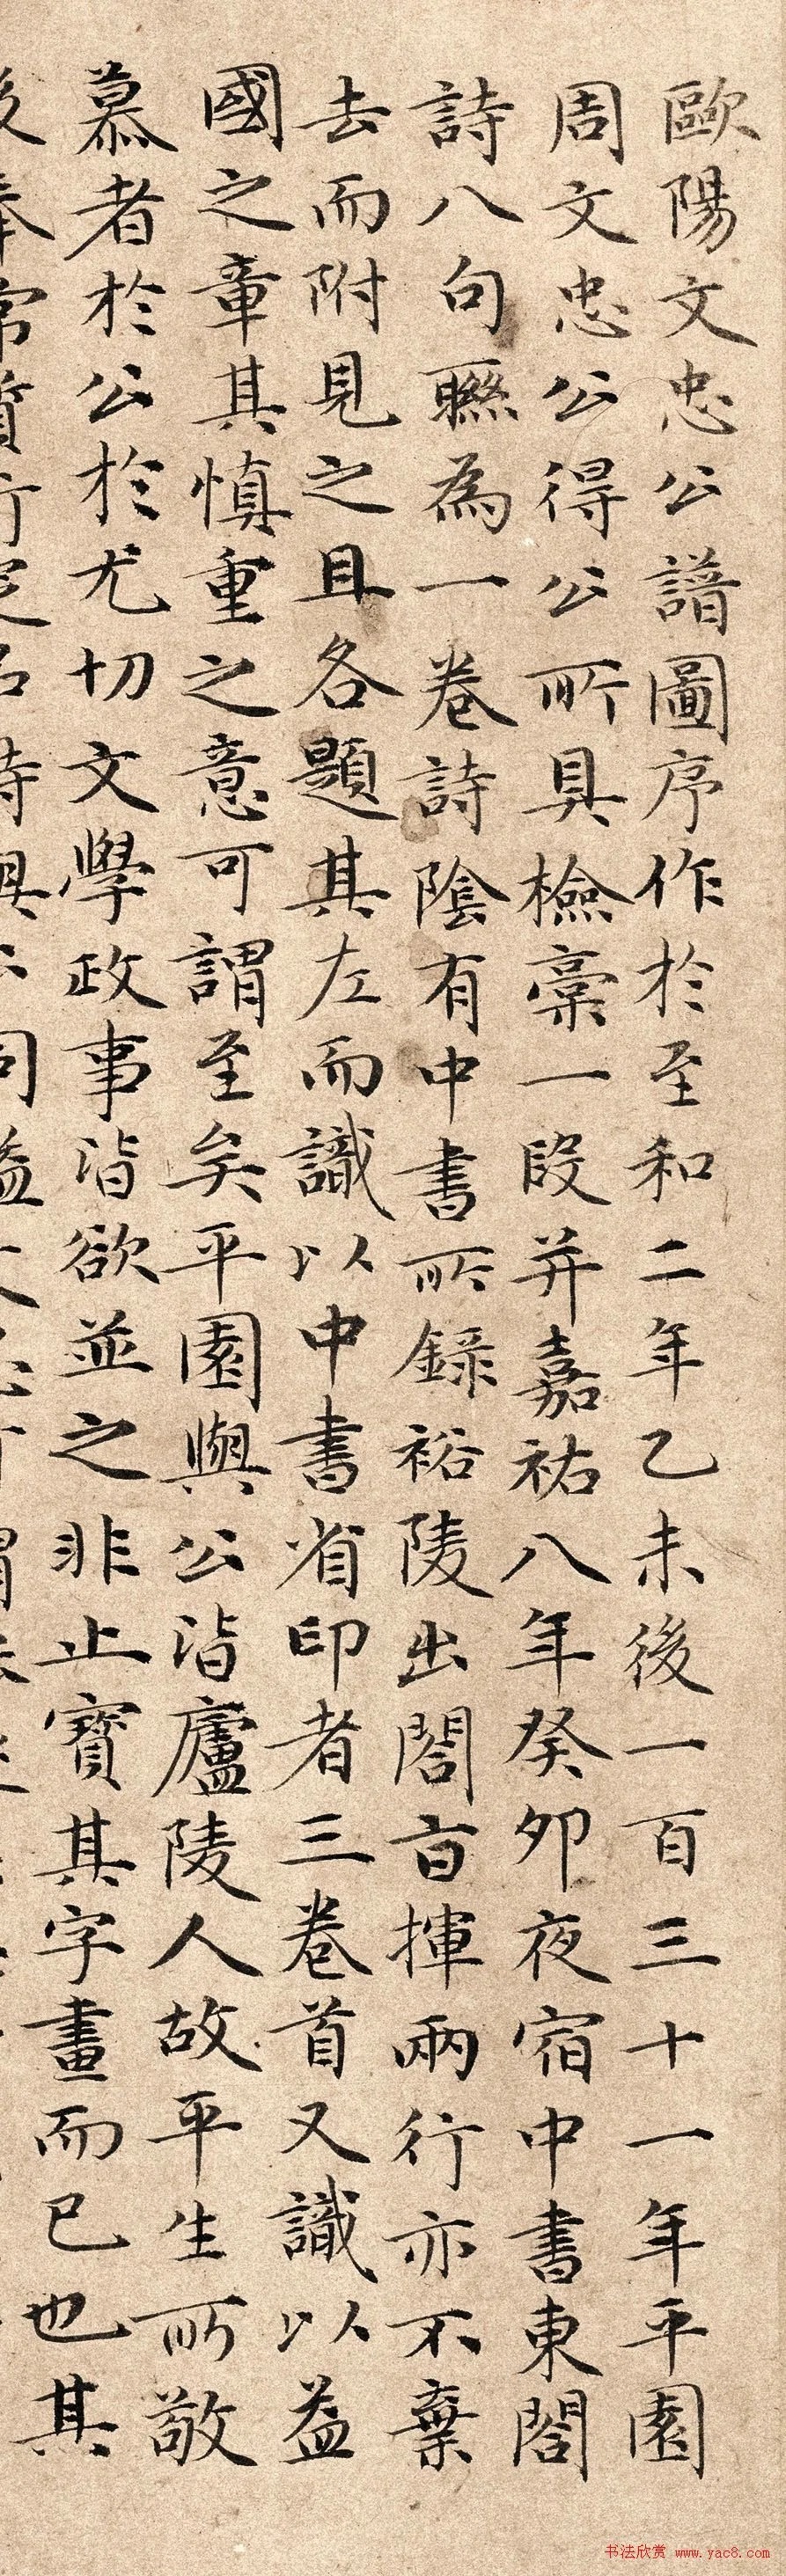 歐陽文忠公譜圖序作於至和二年乙未後一百三十一年平園
周文忠公得公所具檢稾一段并嘉祐八年癸卯夜宿中書東閤
詩八句聮為一卷詩陰有中書所錄裕陵出閤百揮兩行亦不棄
去而附見之且各題其左而識以中書省印者三卷首又識以益
國之章其慎重之意可謂至矣平園與公皆廬陵人故平生所敬
慕者於公於尤切文學政事皆欲並之非止寳其字畫而已也其
书法欣赏 www.yac8.com